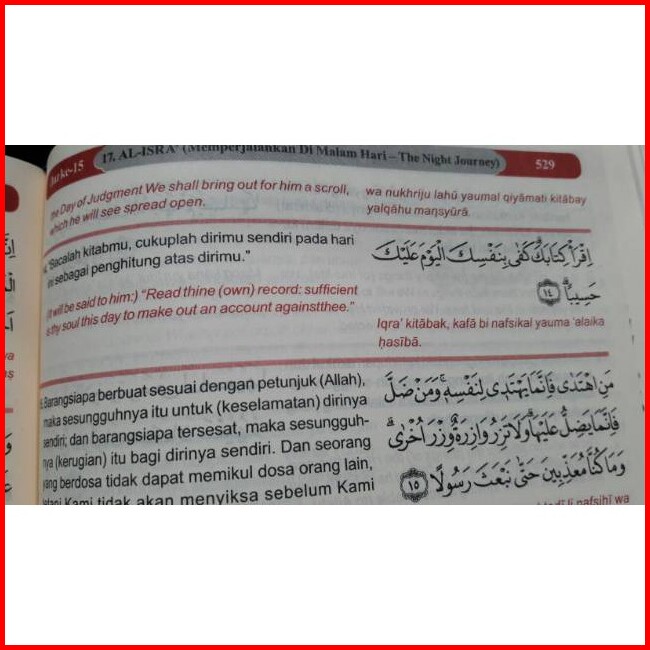 Juz ke-15
17. AL-ISRA' (Memperjalankan Di Malam Hari – The Night Journey)
529
the Day of Judgment We shall bring out for him a scroll,
which he will see spread open.
wa nukhriju lahū yaumal qiyāmati kitābay
yalqāhu maņsyūrā.
"Bacalah kitabmu, cukuplah dirimu sendiri pada hari
ini sebagai penghitung atas dirimu."
(It will be said to him:) "Read thine (own) record: sufficient
is thy soul this day to make out an account againstthee."
اِقْرَأْ كِتَابَكَۗ كَفٰى بِنَفْسِكَ الْيَوْمَ عَلَيْكَ
حَسِيْبًاۗ ١٤
Iqra' kitābak, kafā bi nafsikal yauma 'alaika
ḥasībā.
Barangsiapa berbuat sesuai dengan petunjuk (Allah),
maka sesungguhnya itu untuk (keselamatan) dirinya
sendiri; dan barangsiapa tersesat, maka sesungguh-
nya (kerugian) itu bagi dirinya sendiri. Dan seorang
yang berdosa tidak dapat memikul dosa orang lain,
tetapi Kami tidak akan menyiksa sebelum Kami
مَنِ اهْتَدٰى فَاِنَّمَا يَهْتَدِيْ لِنَفْسِهٖۚ وَمَنْ ضَلَّ
فَاِنَّمَا يَضِلُّ عَلَيْهَاۗ وَلَا تَزِرُ وَازِرَةٌ وِّزْرَ اُخْرٰىۗ
وَمَا كُنَّا مُعَذِّبِيْنَ حَتّٰى نَبْعَثَ رَسُوْلًا ١٥
li nafsihī wa